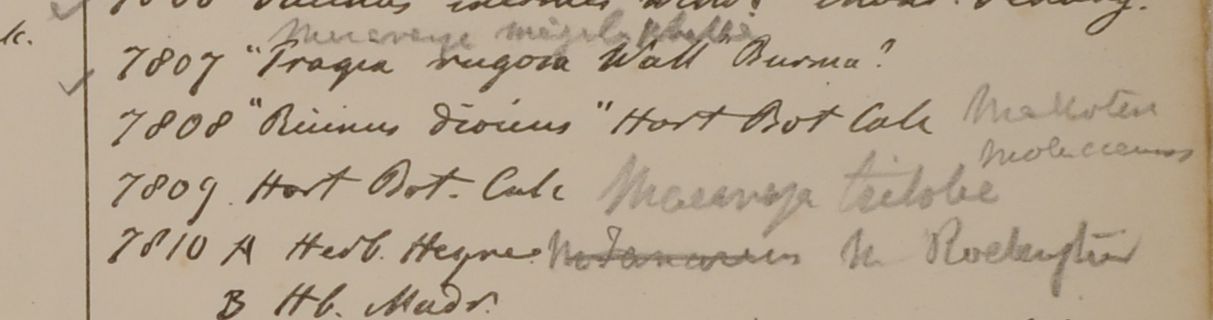 Macaranga
7807 "Tragia rugosa Wall" Burma?
7808 "Ricinus dioicus" Hort Bot Calc Mallotus
moluccanus
7809. Hort Bot. Calc Macaranga triloba
7810 A Herb. Heyne M Tanarius M
B Hb. Madr.